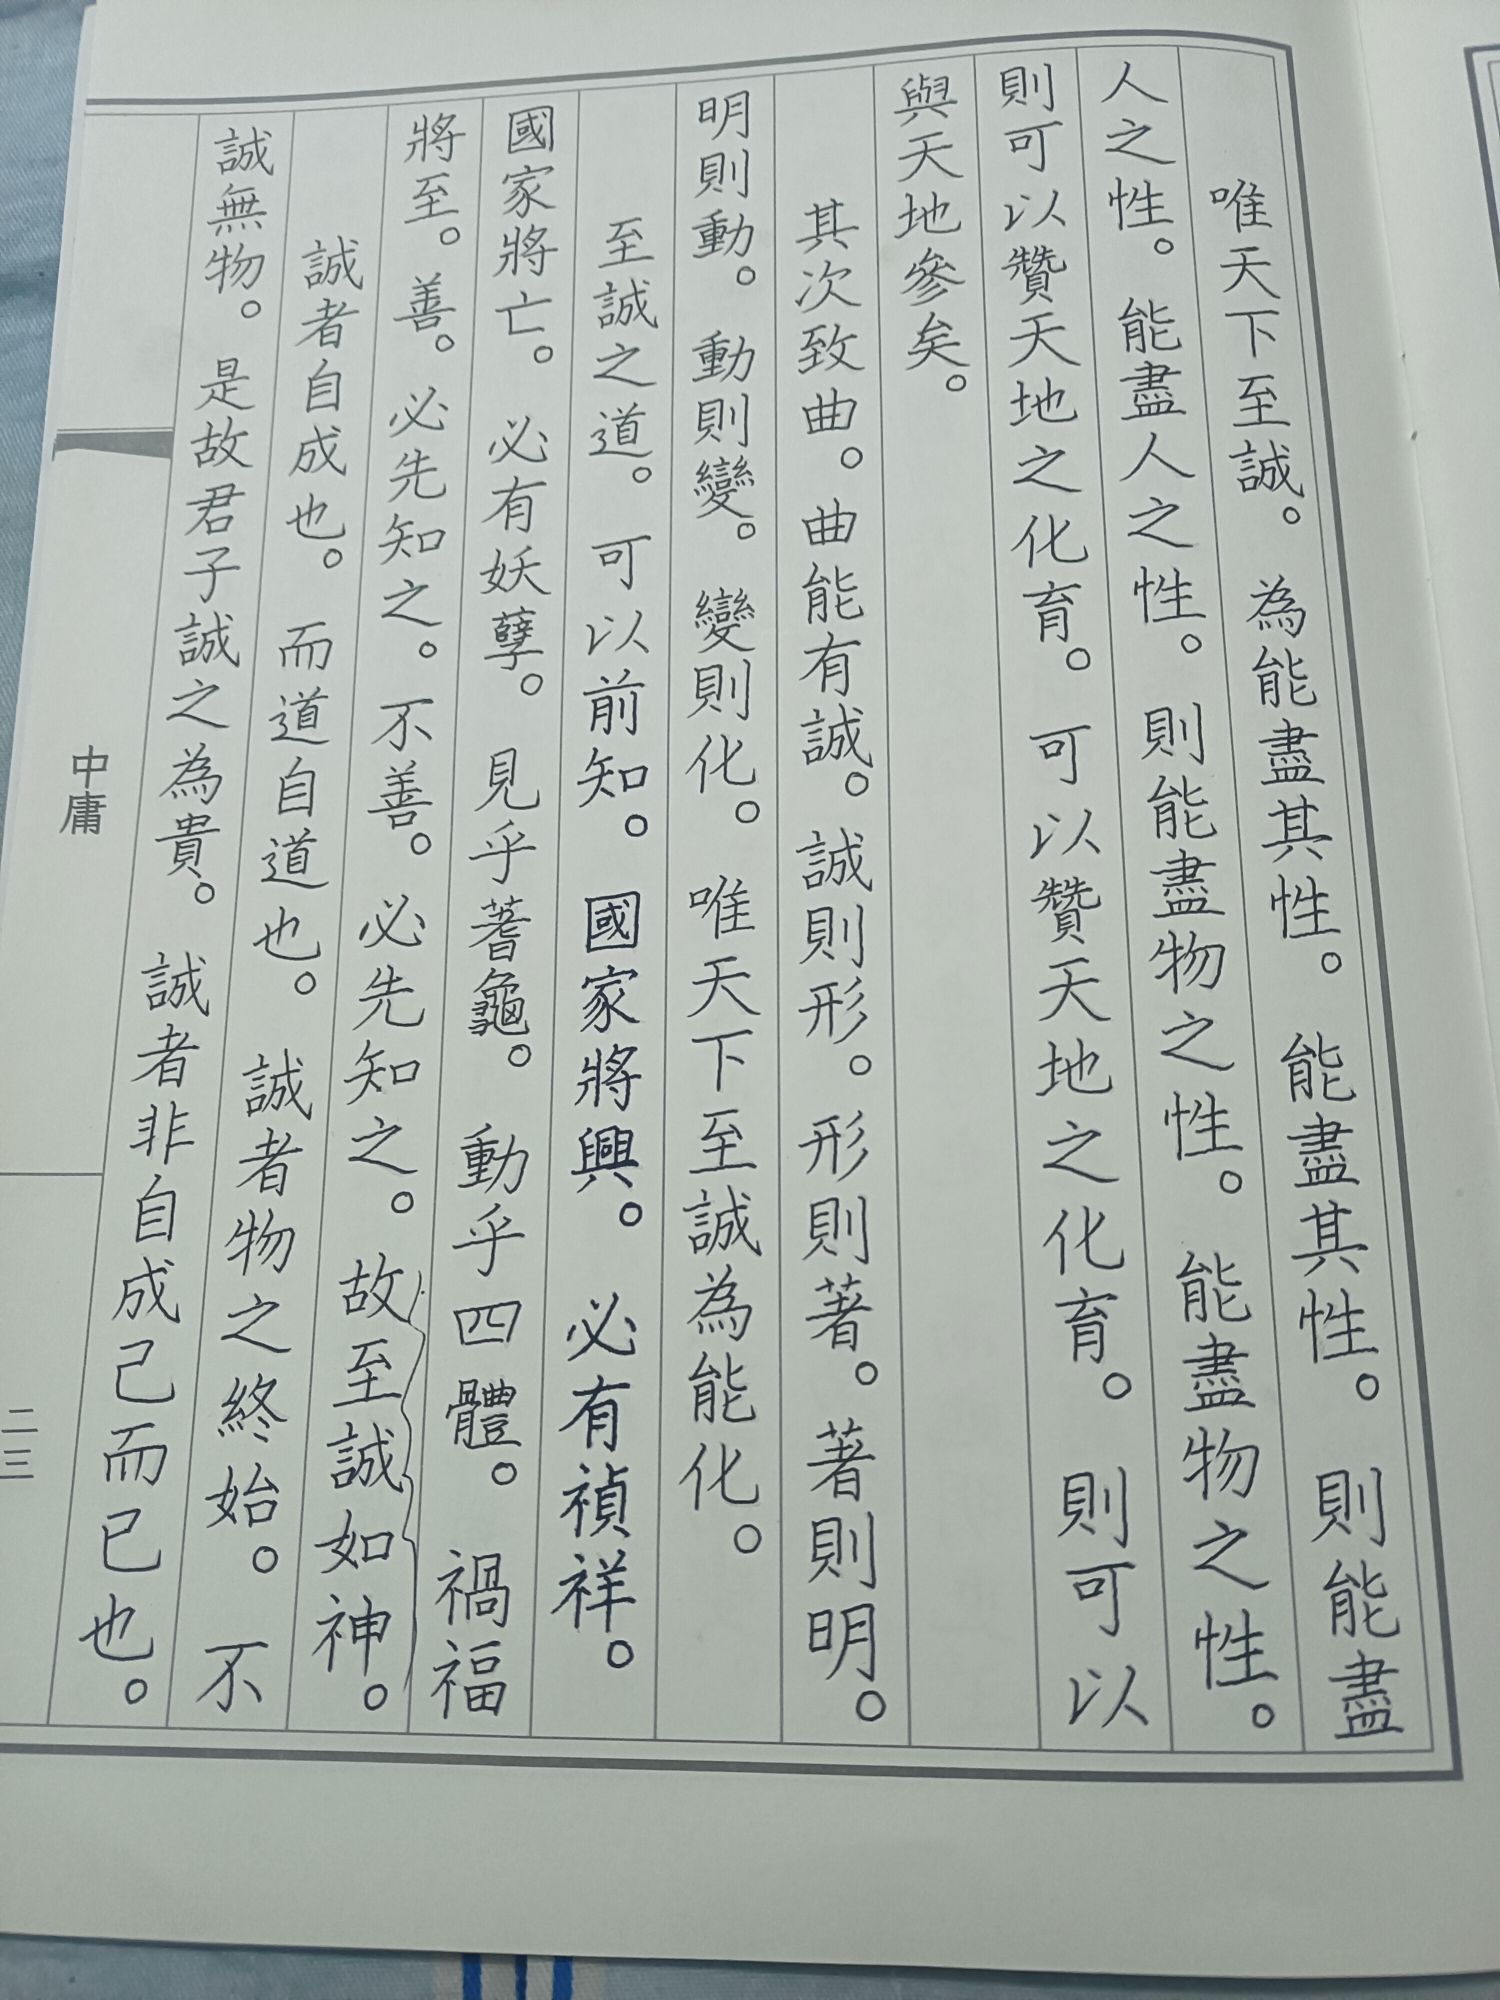 唯天下至誠。為能盡其性。能盡其性。則能盡
人之性。能盡人之性。則能盡物之性。能盡物之性。
則可以贊天地之化育。可以贊天地之化育。則可以
與天地參矣。
其次致曲。曲能有誠。誠則形。形則著。著則明。
明則動。動則變。變則化。唯天下至誠為能化。
至誠之道。可以前知。國家將興。必有禎祥。
國家將亡。必有妖孽。見乎蓍龜。動乎四體。禍福
將至。善。必先知之。不善。必先知之。故至誠如神。
誠者自成也。而道自道也。誠者物之終始。不
誠無物。是故君子誠之為貴。誠者非自成己而已也。
中庸
二三